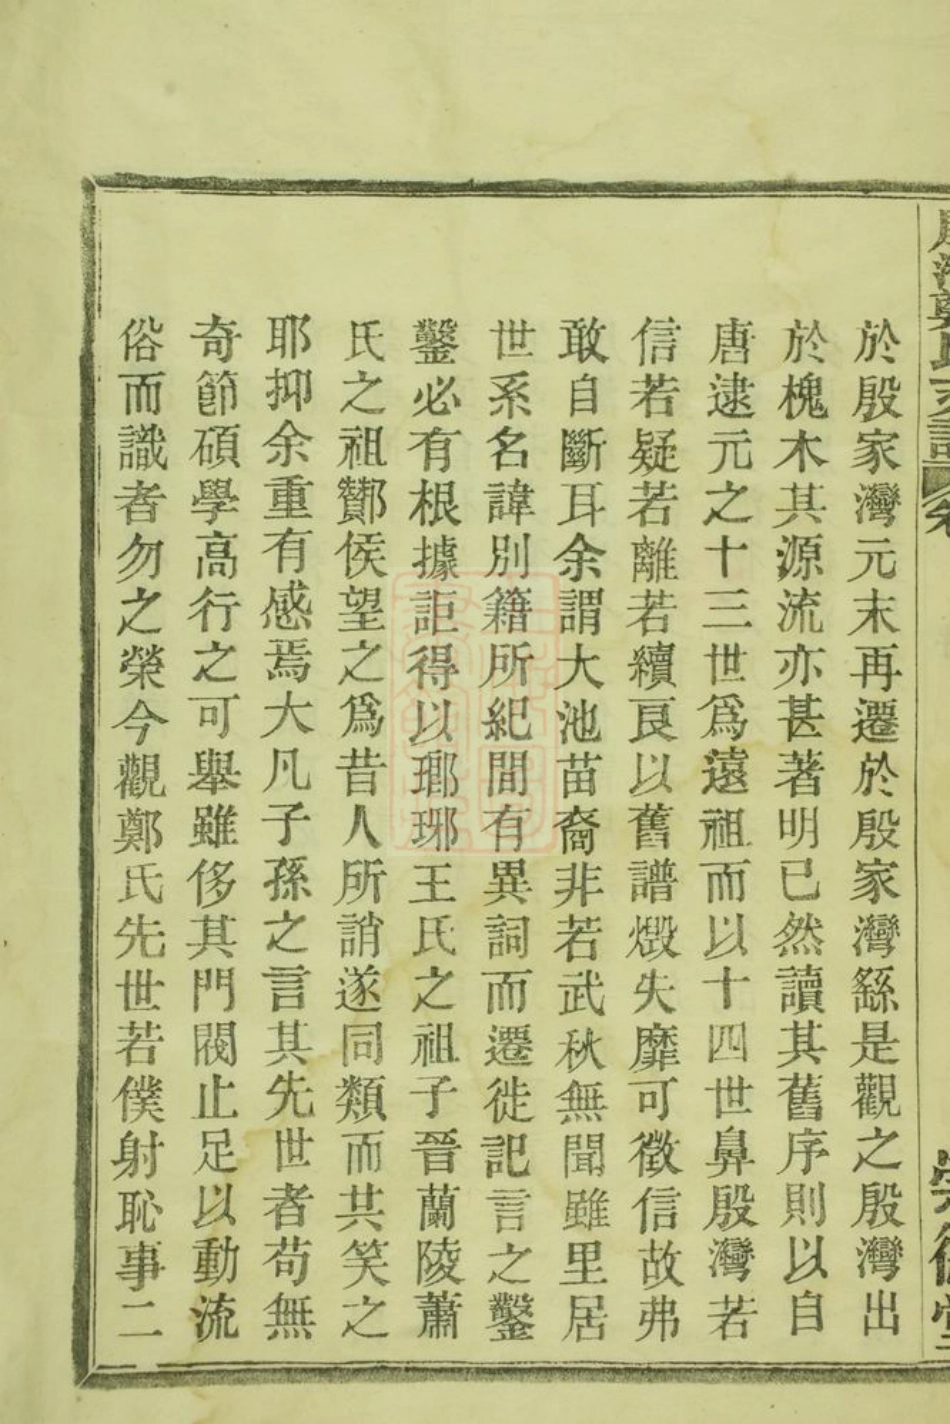 於殷家灣元末再遷於殷家灣繇是觀之殷灣出
於槐木其源流亦甚著明已然讀其舊序則以自
唐逮元之十三世爲遠祖而以十四世鼻殷灣若
信若疑若離若續良以舊譜燬失靡可徵信故弗
敢自斷耳余謂大池苗裔非若武秋無聞雖里居
世系名諱別籍所紀間有異詞而遷徙記言之鑿
鑿必有根據詎得以瑯琊王氏之祖子晉蘭陵蕭
氏之祖酇侯望之爲昔人所誚遂同類而共笑之
耶抑余重有感焉大凡子孫之言其先世者苟無
奇節碩學高行之可舉雖侈其門閥止足以動流
俗而識者勿之榮今觀鄭氏先世若僕射恥事二